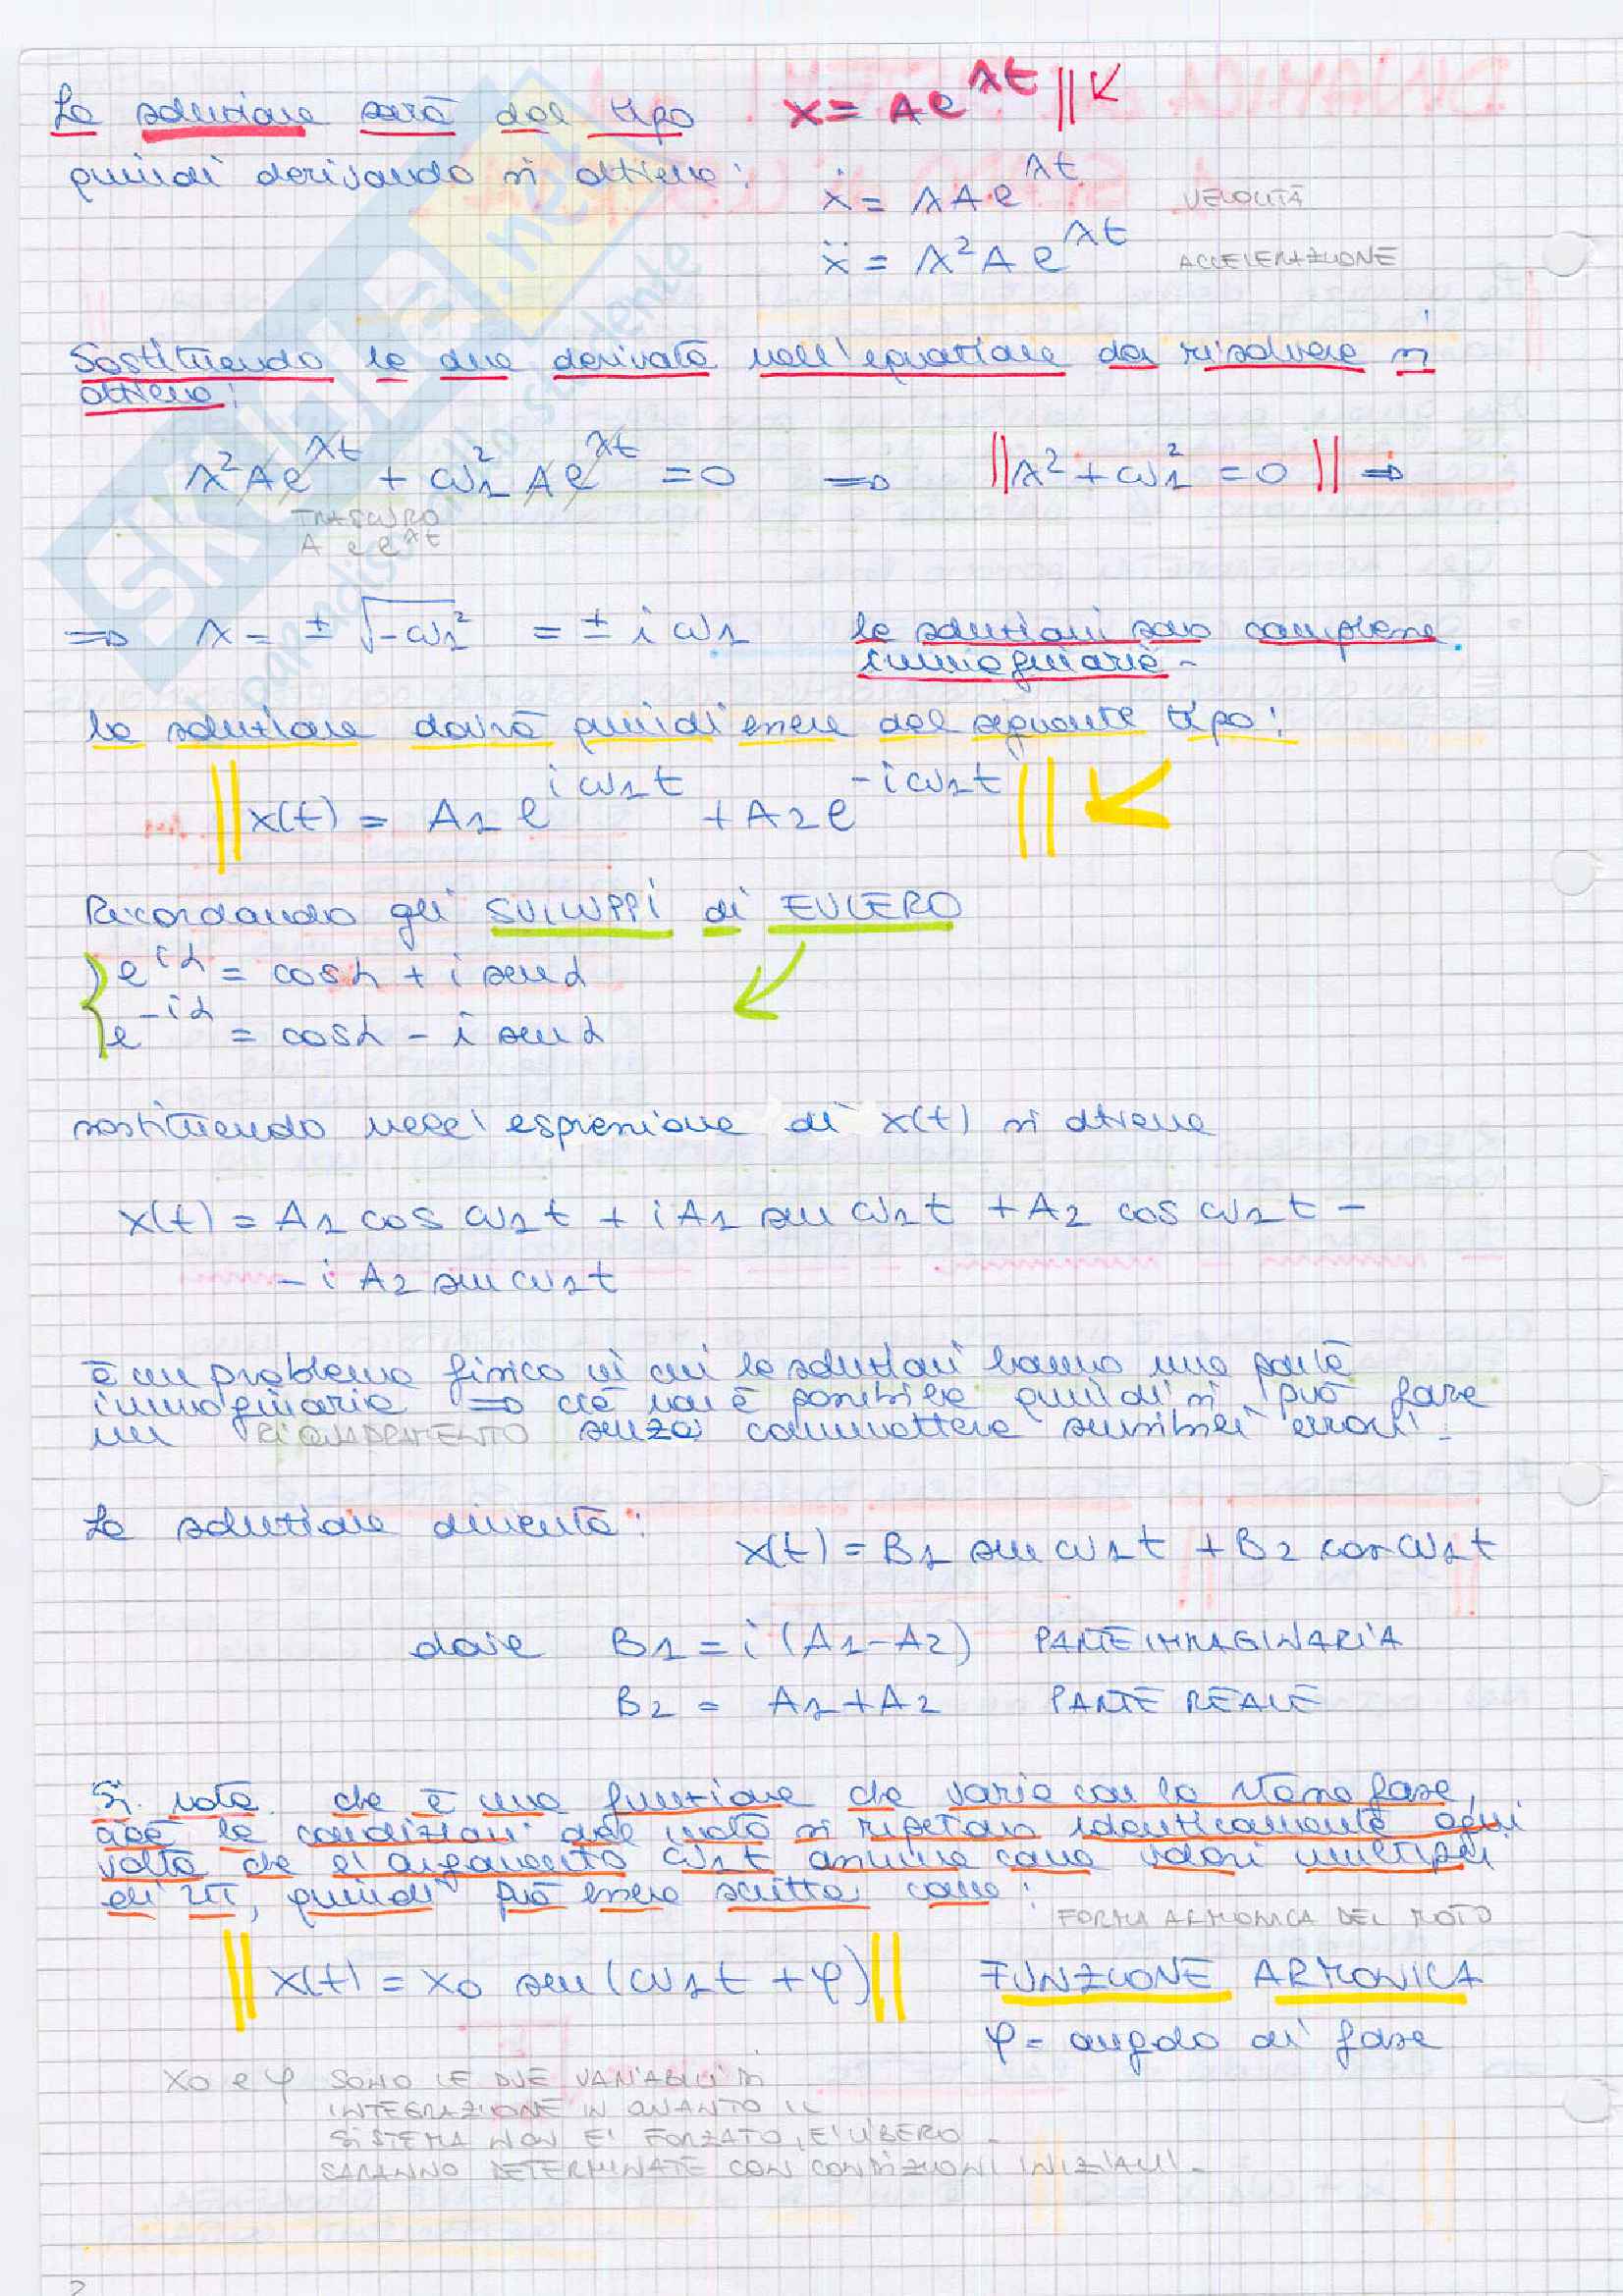 La soluzione sarà del tipo x = A e^λt
quindi derivando si ottiene: ẋ = λ A e^λt VELOCITÀ
ẍ = λ² A e^λt ACCELERAZIONE
Sostituendo le due derivate nell'equazione da risolvere si
ottiene:
λ² A e^λt + ω₁² A e^λt = 0 ⇒ λ² + ω₁² = 0 ⇒
TRASCURO
A e e^λt
⇒ λ = ± √-ω₁² = ± i ω₁ le soluzioni sono complesse
immaginarie -
la soluzione dovrà quindi essere del seguente tipo:
x(t) = A₁ e^iω₁t + A₂ e^-iω₁t
Ricordando gli SVILUPPI di EULERO
e^iα = cos α + i sen α
e^-iα = cos α - i sen α
sostituendo nell'espressione di x(t) si ottiene
x(t) = A₁ cos ω₁t + i A₁ sen ω₁t + A₂ cos ω₁t -
- i A₂ sen ω₁t
è un problema fisico in cui le soluzioni hanno una parte
immaginaria ⇒ ciò non è possibile quindi si può fare
un senza commettere sensibili errori.
La soluzione diventa:
x(t) = B₁ sen ω₁t + B₂ cos ω₁t
dove B₁ = i (A₁ - A₂) PARTE IMMAGINARIA
B₂ = A₁ + A₂ PARTE REALE
Si nota che è una funzione che varia con la stessa fase,
cioè le condizioni del moto si ripetono identicamente ogni
volta che l'argomento ω₁t assume come valori multipli
di 2π, quindi può essere scritta come:
FORMA ARMONICA DEL MOTO
x(t) = x₀ sen (ω₁t + φ) FUNZIONE ARMONICA
φ = angolo di fase
x₀ e φ SONO LE DUE VARIABILI DI
INTEGRAZIONE IN QUANTO IL
SISTEMA NON E' FORZATO, E' LIBERO -
SARANNO DETERMINATE CON CONDIZIONI INIZIALI -
2